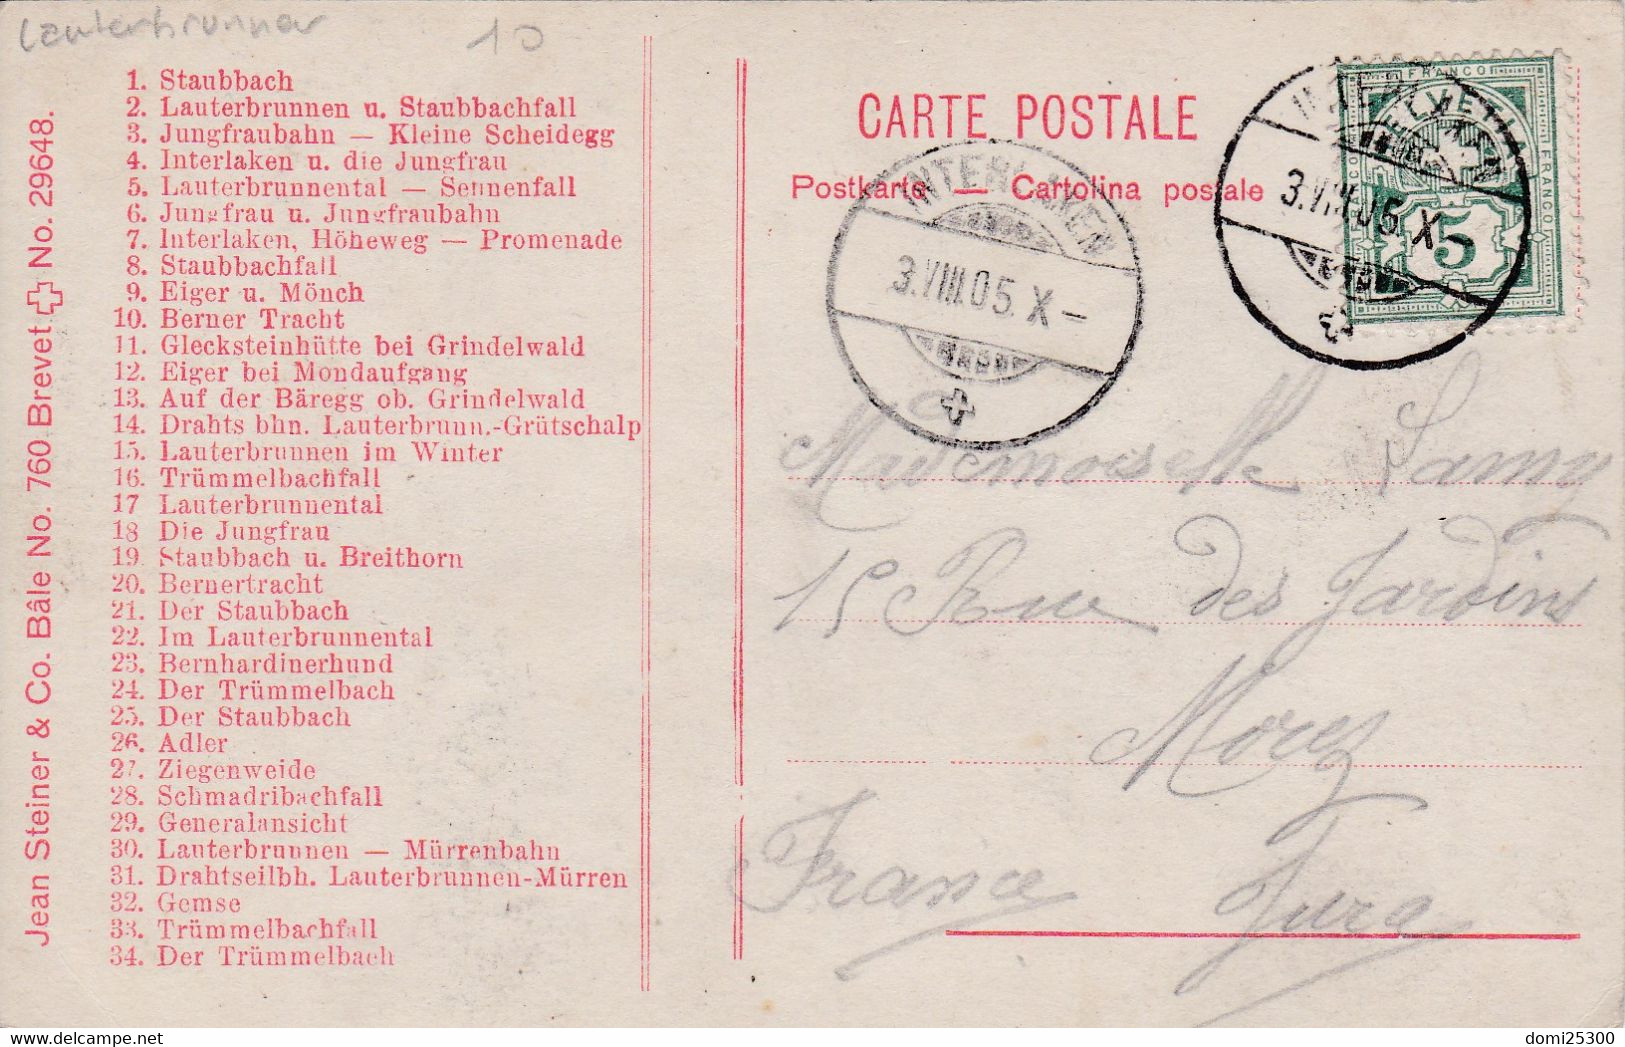 Lauterbrunnen
10
Jean Steiner & Co. Bâle No. 760 Brevet No. 29648.
1. Staubbach
2. Lauterbrunnen u. Staubbachfall
3. Jungfraubahn — Kleine Scheidegg
4. Interlaken u. die Jungfrau
5. Lauterbrunnental — Sennenfall
6. Jungfrau u. Jungfraubahn
7. Interlaken, Höheweg — Promenade
8. Staubbachfall
9. Eiger u. Mönch
10. Berner Tracht
11. Glecksteinhütte bei Grindelwald
12. Eiger bei Mondaufgang
13. Auf der Bäregg ob. Grindelwald
14. Drahts bhn. Lauterbrunn.-Grütschalp
15. Lauterbrunnen im Winter
16. Trümmelbachfall
17 Lauterbrunnental
18 Die Jungfrau
19. Staubbach u. Breithorn
20. Bernertracht
21. Der Staubbach
22. Im Lauterbrunnental
23. Bernhardinerhund
24. Der Trümmelbach
25. Der Staubbach
26. Adler
27. Ziegenweide
28. Schmadribachfall
29. Generalansicht
30. Lauterbrunnen — Mürrenbahn
31. Drahtseilbh. Lauterbrunnen-Mürren
32. Gemse
33. Trümmelbachfall
34. Der Trümmelbach
CARTE POSTALE
Postkarte — Cartolina postale
INTERLAKEN
3.VIII.05.X–
INTERLAKEN
3.VIII.05.X
FRANCO
HELVETIA
FRANCO
FRANCO
5
Mademoiselle Lamy
15 Rue des Jardins
Morez
France Jura
delcampe.net
domi25300